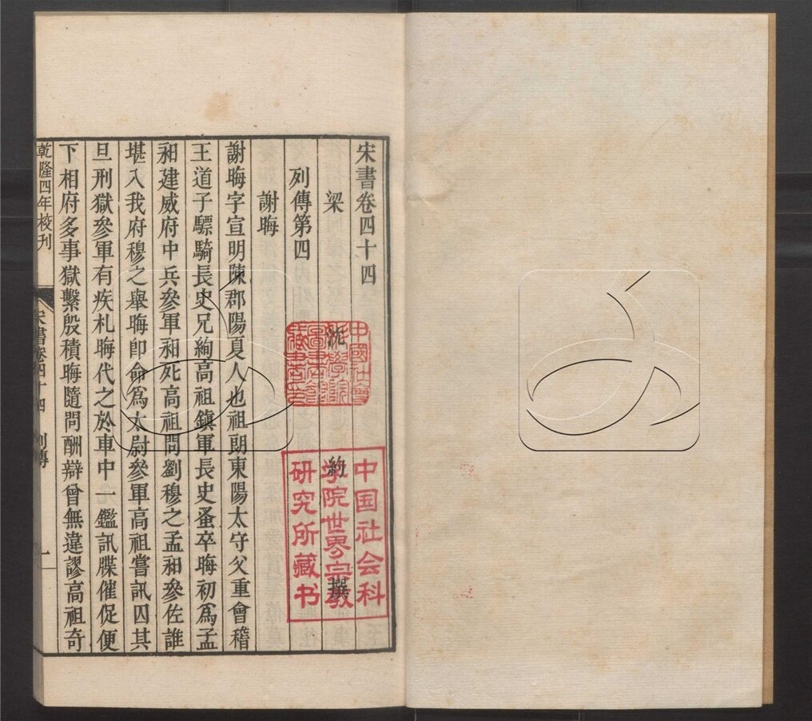 宋書卷四十四
梁 沈 約 撰
列傳第四
謝晦
謝晦字宣明陳郡陽夏人也祖朗東陽太守父重會稽
王道子驃騎長史兄絢高祖鎮軍長史蚤卒晦初爲孟
昶建威府中兵參軍昶死高祖問劉穆之孟昶參佐誰
堪入我府穆之舉晦卽命爲太尉參軍高祖嘗訊囚其
旦刑獄參軍有疾札晦代之於車中一鑑訊牒催促便
下相府多事獄繫殷積晦隨問酬辯曾無違謬高祖奇
乾隆四年校刊
宋書卷四十四 列傳
一
中國社會
科學院
圖書館
藏書
中国社会科
学院世界宗教
研究所藏书